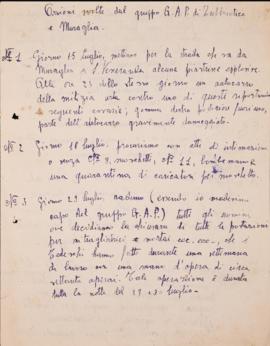 Azioni svolte dal gruppo G.A.P. di
e Muraglia.
N° 1 Giorno 15 luglio, mettiamo per la strada che va da
Muraglia a S. Veneranda alcune piastrine esplosive.
Alle ore 23 dello stesso giorno un autocarro
della milizia urta contro una di queste riportando
seguenti avarie; gomma destra posteriore fuori uso,
parte dell'autocarro gravemente danneggiata.
N° 2 Giorno 18 luglio, procuriamo con atto di intimazione
e senza N° 9 moschetti, N° 11 bombe a mano e
una quarantina di caricatori per moschetto.
N° 3 Giorno 29 luglio, raduno (essendo io medesimo
capo del gruppo G.A.P.) tutti gli uomini
ove decidiamo la chiusura di tutte le postazioni
per mitragliatrici e mortai ecc. ecc., che i
Tedeschi hanno fatto durante una settimana
di lavoro con una mano d'opera di circa
settanta operai. Tale operazione è durata
tutta la notte del 29 - 30 luglio.